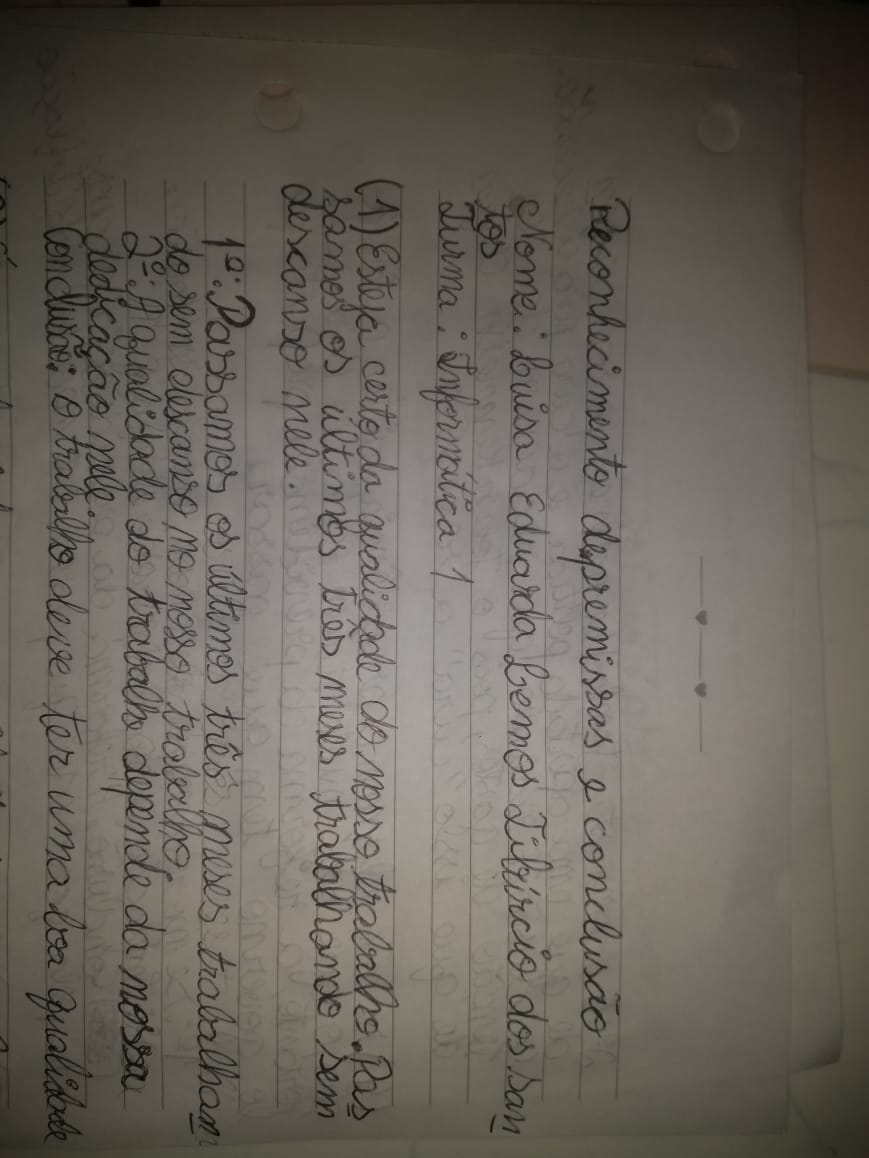 Reconhecimento de premissas e conclusão
Nome: Luisa Eduarda Lemos Tibúrcio dos San
tos
Turma: Informática 1
(1) Esteja certo da qualidade do nosso trabalho. Pas
samos os últimos três meses trabalhando sem
descanso nele.
1º: Passamos os últimos três meses trabalhan
do sem descanso no nosso trabalho.
2º: A qualidade do trabalho depende da nossa
dedicação nele.
Conclusão: O trabalho deve ter uma boa qualidade